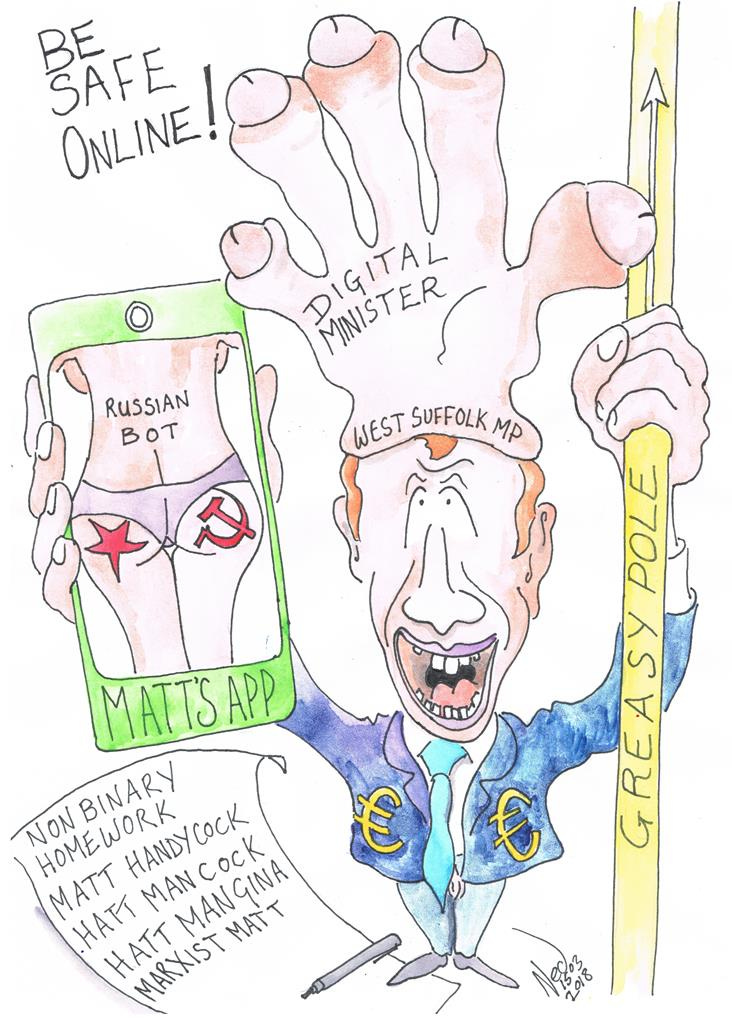 BE
SAFE
ONLINE!
DIGITAL
MINISTER
WEST SUFFOLK MP
RUSSIAN
BOT
MATT'S APP
GREASY POLE
€ €
NON BINARY
HOMEWORK
MATT HANDYCOCK
HATT MANCOCK
HATT MANGINA
MARXIST MATT
15 03
2018